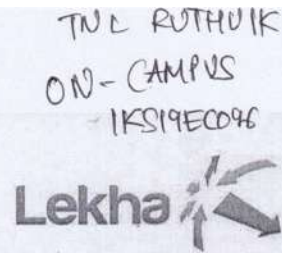 TNL RUTHUIK
ON-CAMPUS
1KS19EC096
Lekha